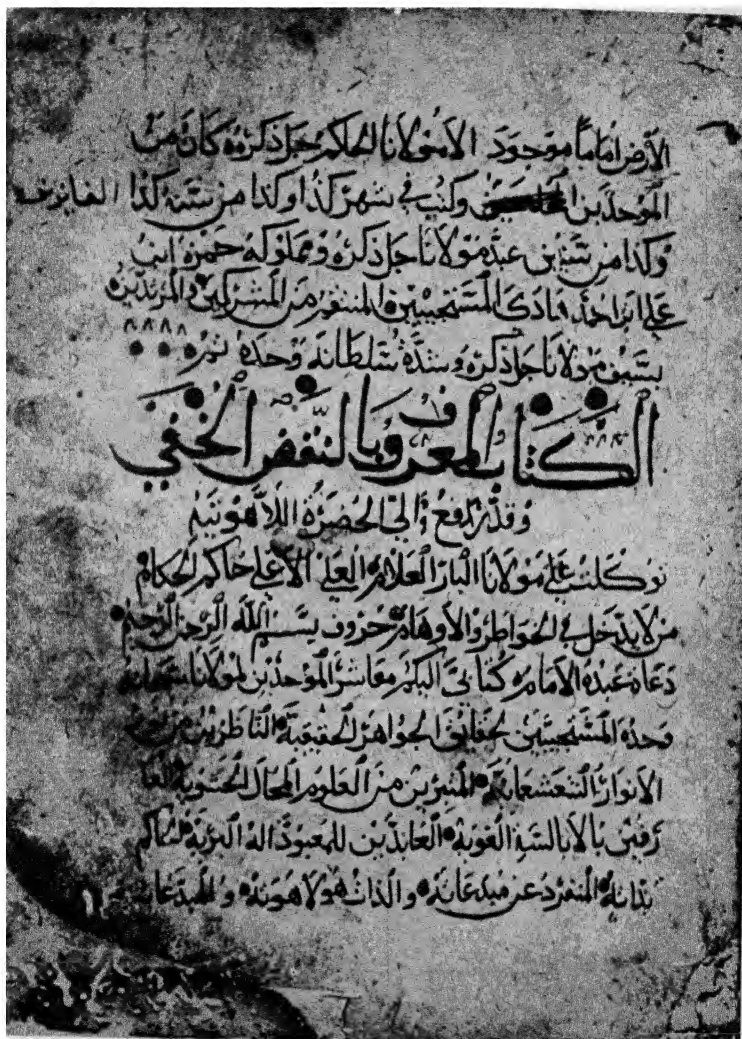 الأرض امامًا موجود الا مولانا الحاكم جل ذكره كان من
الموحدين وكتب في شهر كذا وكذا من سنة كذا الفايزين
وكذا من سنين عبد مولانا جل ذكره ومملوكه حمزه ابن
علي ابن احمد هادى المستجيبين المنتقم من المشركين والمرتدين
بسيف مولانا جل ذكره وشدة سلطانه وحده تم
الكتاب المعروف بالنقض الخفي
وقد رفع الى الحضرة اللاهوتيه
توكلت على مولانا البار العلام العلي الاعلى حاكم الحكام
من لا يدخل في الخواطر والاوهام حروف بسم الله الرحمن الرحيم
دعاة عبده الامام كتابي اليكم معاشر الموحدين لمولانا سبحانه
وحده المستجيبين لحقايق الجواهر الحقيقية الناظرين
الانوار الشعشعانية المتبرين من العلوم المحال الحشوية العا
رفين بالابالسة الغوية العابدين للمعبود اله البرية الحاكم
بذاته المنفرد عن مبدعاته والذات هو لاهوته والمبدعات